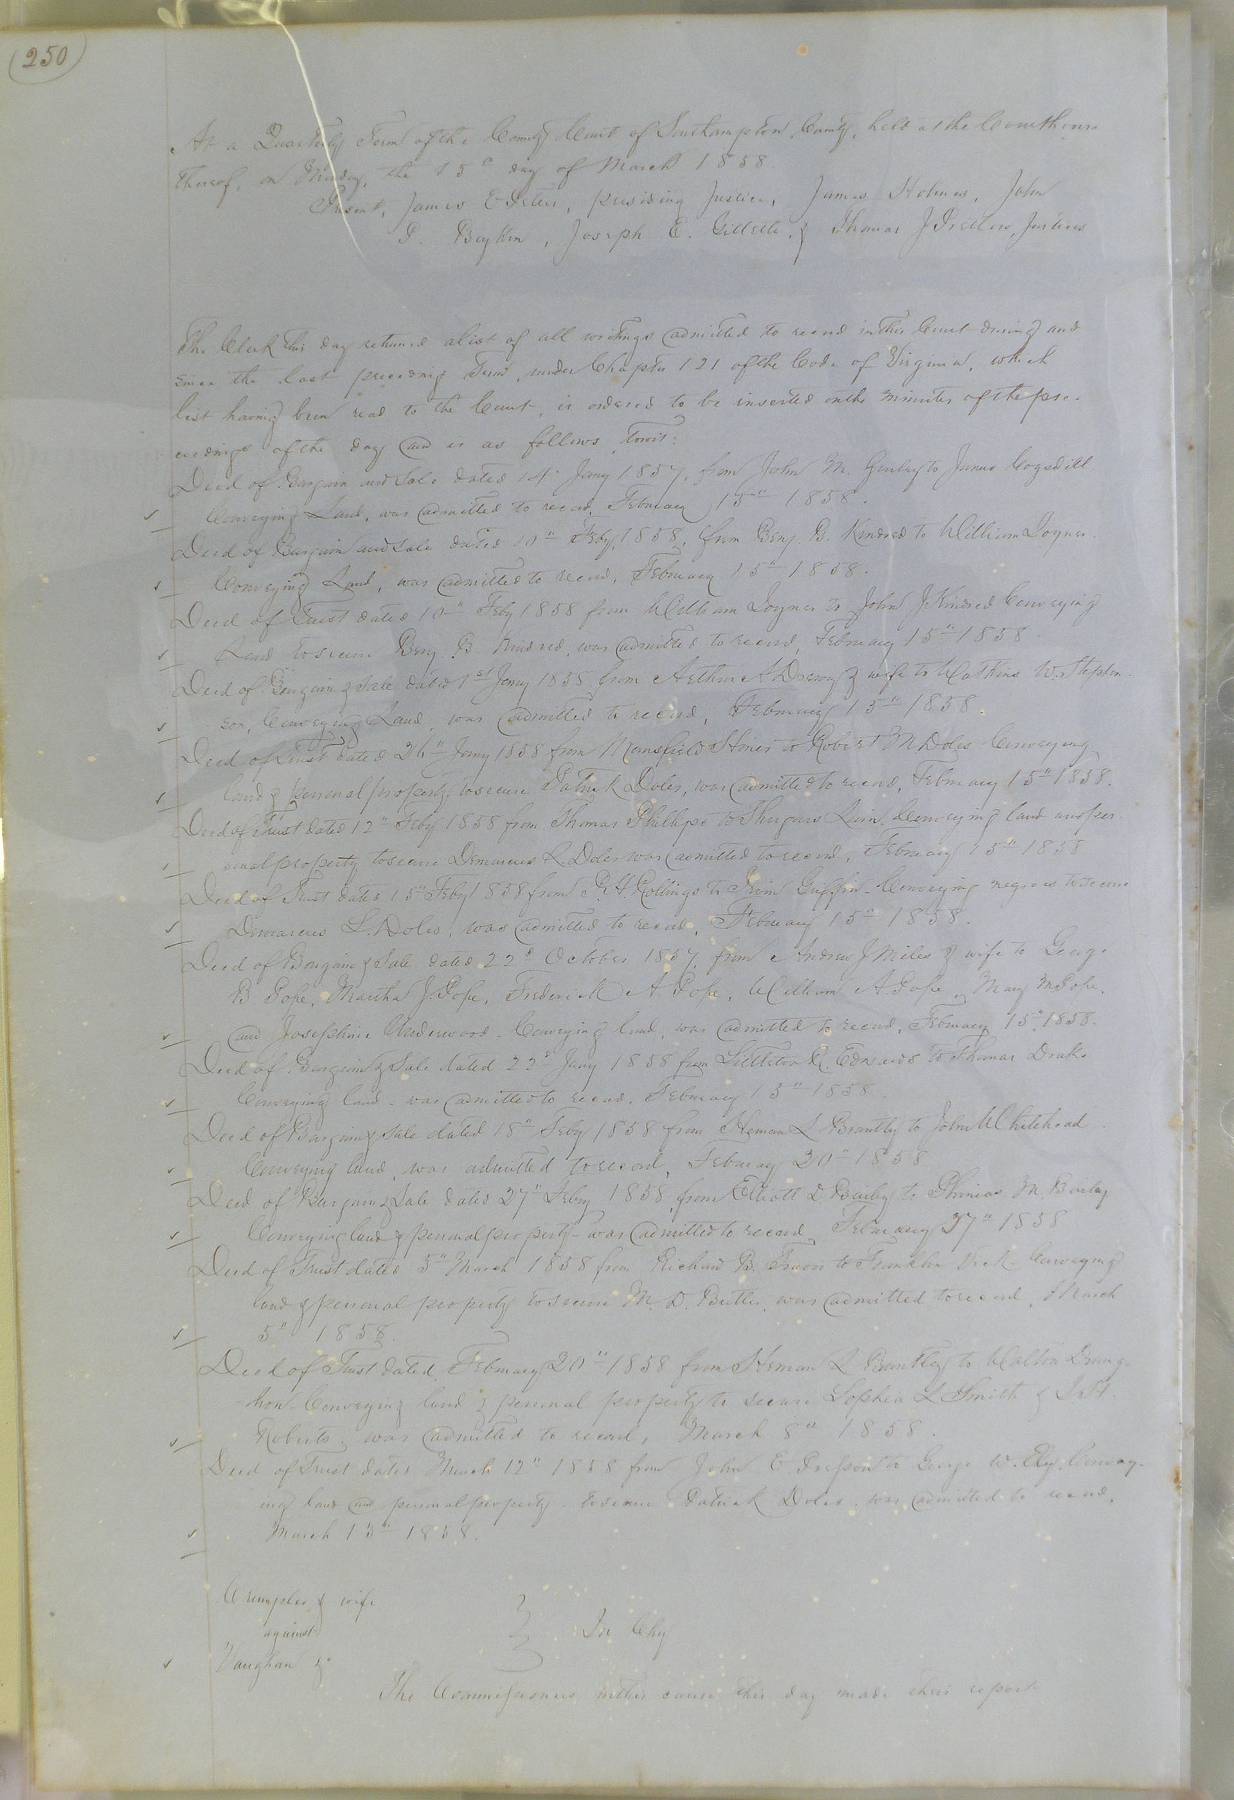 250
At a Quarterly Term of the County Court of Southampton County, held at the Courthouse
thereof, on Monday, the 15th day of March 1858
Present, James presiding Justice, James Holmes, John
D. Boykin, Joseph E. Gillette, & Thomas J Pretlow, Justices
The Clerk this day returned a list of all writings admitted to record in this Court during and
since the last preceding Term, under Chapter 121 of the Code of Virginia, which
list having been read to the Court, is ordered to be inserted on the minutes of the pro-
ceedings of the day and is as follows, towit:
Deed of Bargain and Sale dated 14 Jany 1857, from John M. Gurley to James Cogsdill
Conveying Land, was admitted to record, February 15th 1858.
Deed of Bargain and Sale dated 10th Feby, 1858, from Benj. B. Kindred to William Joyner
Conveying Land, was admitted to record, February 15th 1858.
Deed of Trust dated 10th Feby 1858 from William Joyner to John J Kindred Conveying
Land to secure Benj. B. Kindred, was admitted to record, February 15th 1858
Deed of Bargain & Sale dated 1st Jany 1858 from Arthur Drewry & wife to Watkins W. Stephen-
son, Conveying Land, was admitted to record, February 15th 1858.
Deed of Trust dated 26th Jany 1858 from Mansfield to Robert M Doles Conveying
land & personal property, to secure Patrick Doles, was admitted to record, February 15th 1858.
Deed of Trust dated 12th Feby 1858 from Thomas Phillips to Conveying land and per-
sonal property to secure Demarcus L. Doles was admitted to record, February 15th 1858
Deed of Trust dated 15th Feby 1858 from Rollings to Irvin Griffin Conveying negroes to secure
Demarcus L. Doles, was admitted to record, February 15th 1858.
Deed of Bargain & Sale dated 22d October 1857, from Andrew J Miles & wife to George
B Pope, Martha J. Pope, Frederick A Pope, William A Pope, Mary M Pope,
and Josephine Underwood. Conveying land, was admitted to record, February 15th 1858.
Deed of Bargain & Sale dated 22d Jany 1858 from Littleton R. Edwards to Thomas Drake
Conveying land - was admitted to record, February 15th 1858.
Deed of Bargain & Sale dated 18th Feby 1858 from Heman L Brantley to John Whitehead
Conveying land, was admitted to record, February 20th 1858
Deed of Bargain & Sale dated 27th Feby 1858, from Elliott L Bailey to Phineas M. Bailey
Conveying land & personal property - was admitted to record, February 27th 1858
Deed of Trust dated 5th March 1858 from Richard B. to Franklin Vick Conveying
land & personal property to secure M. D. Butler, was admitted to record, March
5th 1858.
Deed of Trust dated February 20th 1858 from Heman L Brantley to Walton Draug-
hon Conveying land & personal property to secure Sophia L Smith &
Roberts, was admitted to record, March 8th 1858.
Deed of Trust dated March 12th 1858 from John E to George W. Convey-
ing land and personal property - to secure Patrick Doles, was admitted to record,
March 15th 1858.
Crumpler & wife
against
In Chy
Vaughan &c
The Commissioners in this cause this day made their report